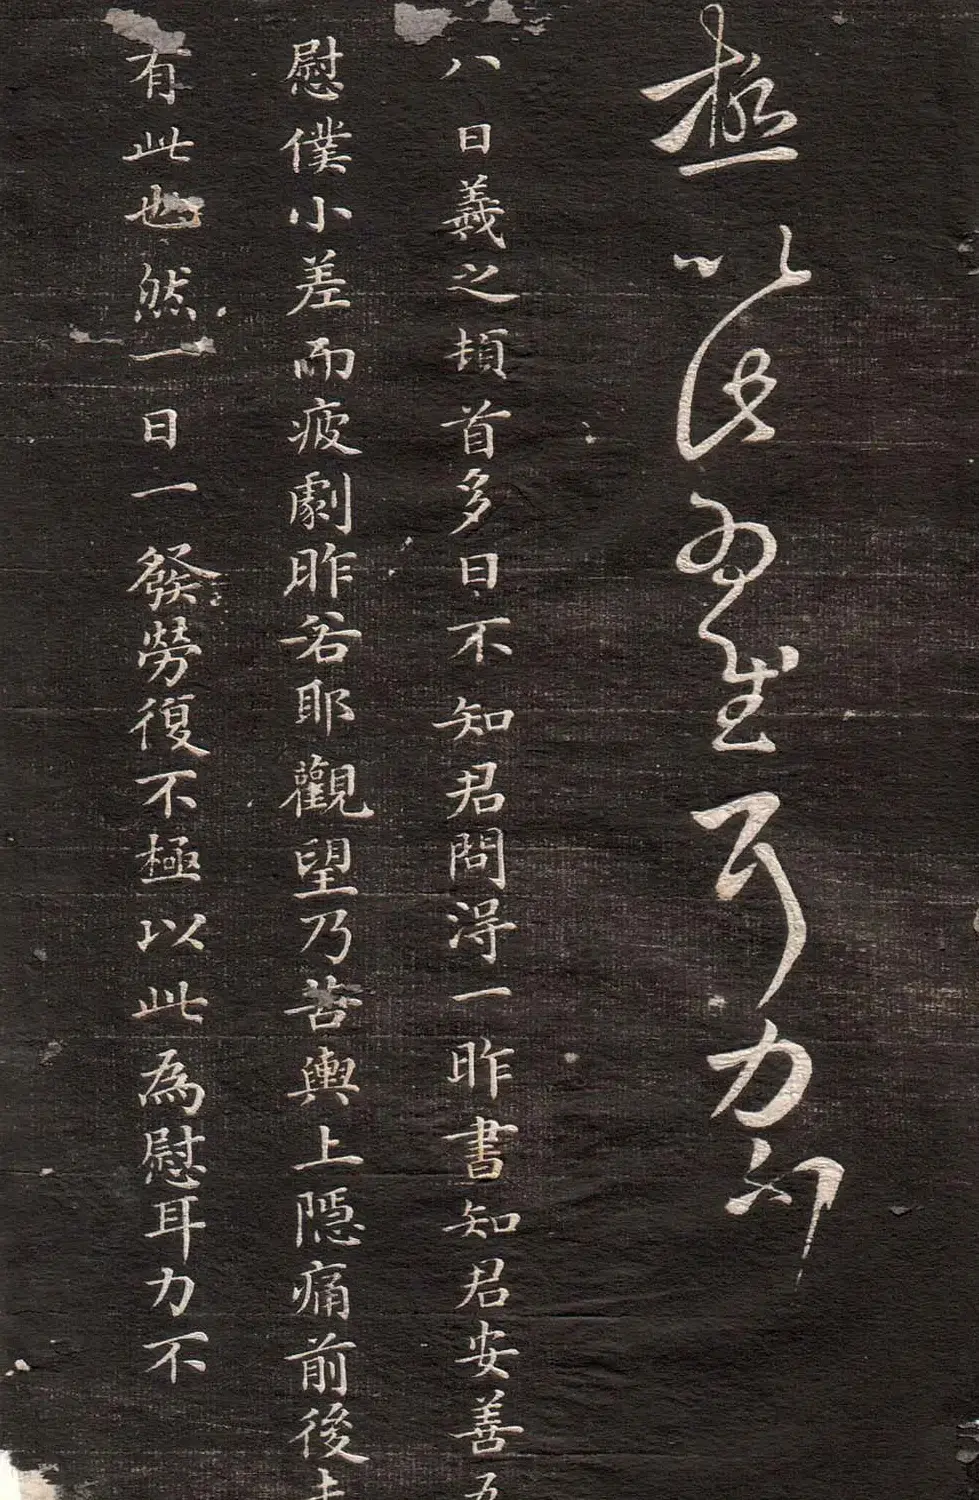 極以此為慰耳力不
八日羲之頓首多日不知君問淂一昨書知君安善五
慰僕小差而疲劇昨若耶觀望乃苦輿上隱痛前後
有此也然一日一發勞復不極以此為慰耳力不